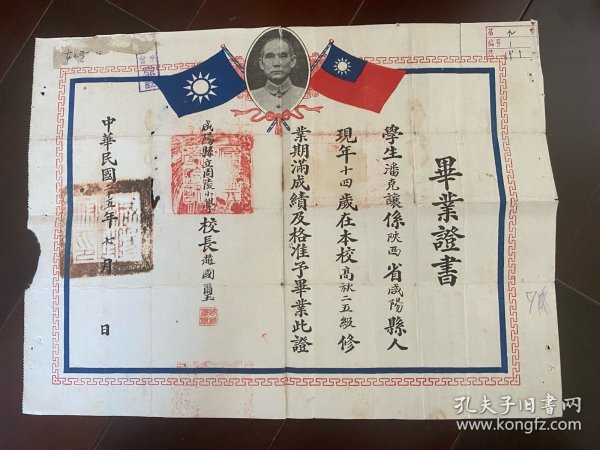 畢業證書
學生潘克讓係陝西省咸陽縣人
現年十四歲在本校高秋二五級修
業期滿成績及格准予畢業此證
咸陽縣立周陵小學校長趙國璽
中華民國二五年七月 日
孔夫子旧书网
www.kongfz.com